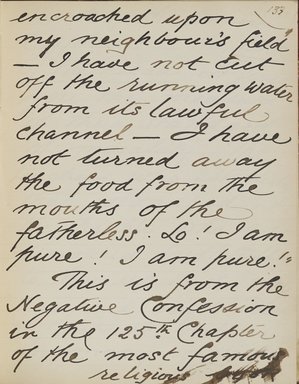 133
encroached upon
my neighbour's field"
— I have not cut
off the running water
from its lawful
channel — I have
not turned away
the food from the
mouths of the
fatherless. Lo! I am
pure! I am pure!"
This is from the
Negative Confession
in the 125th Chapter
of the most famous
religious